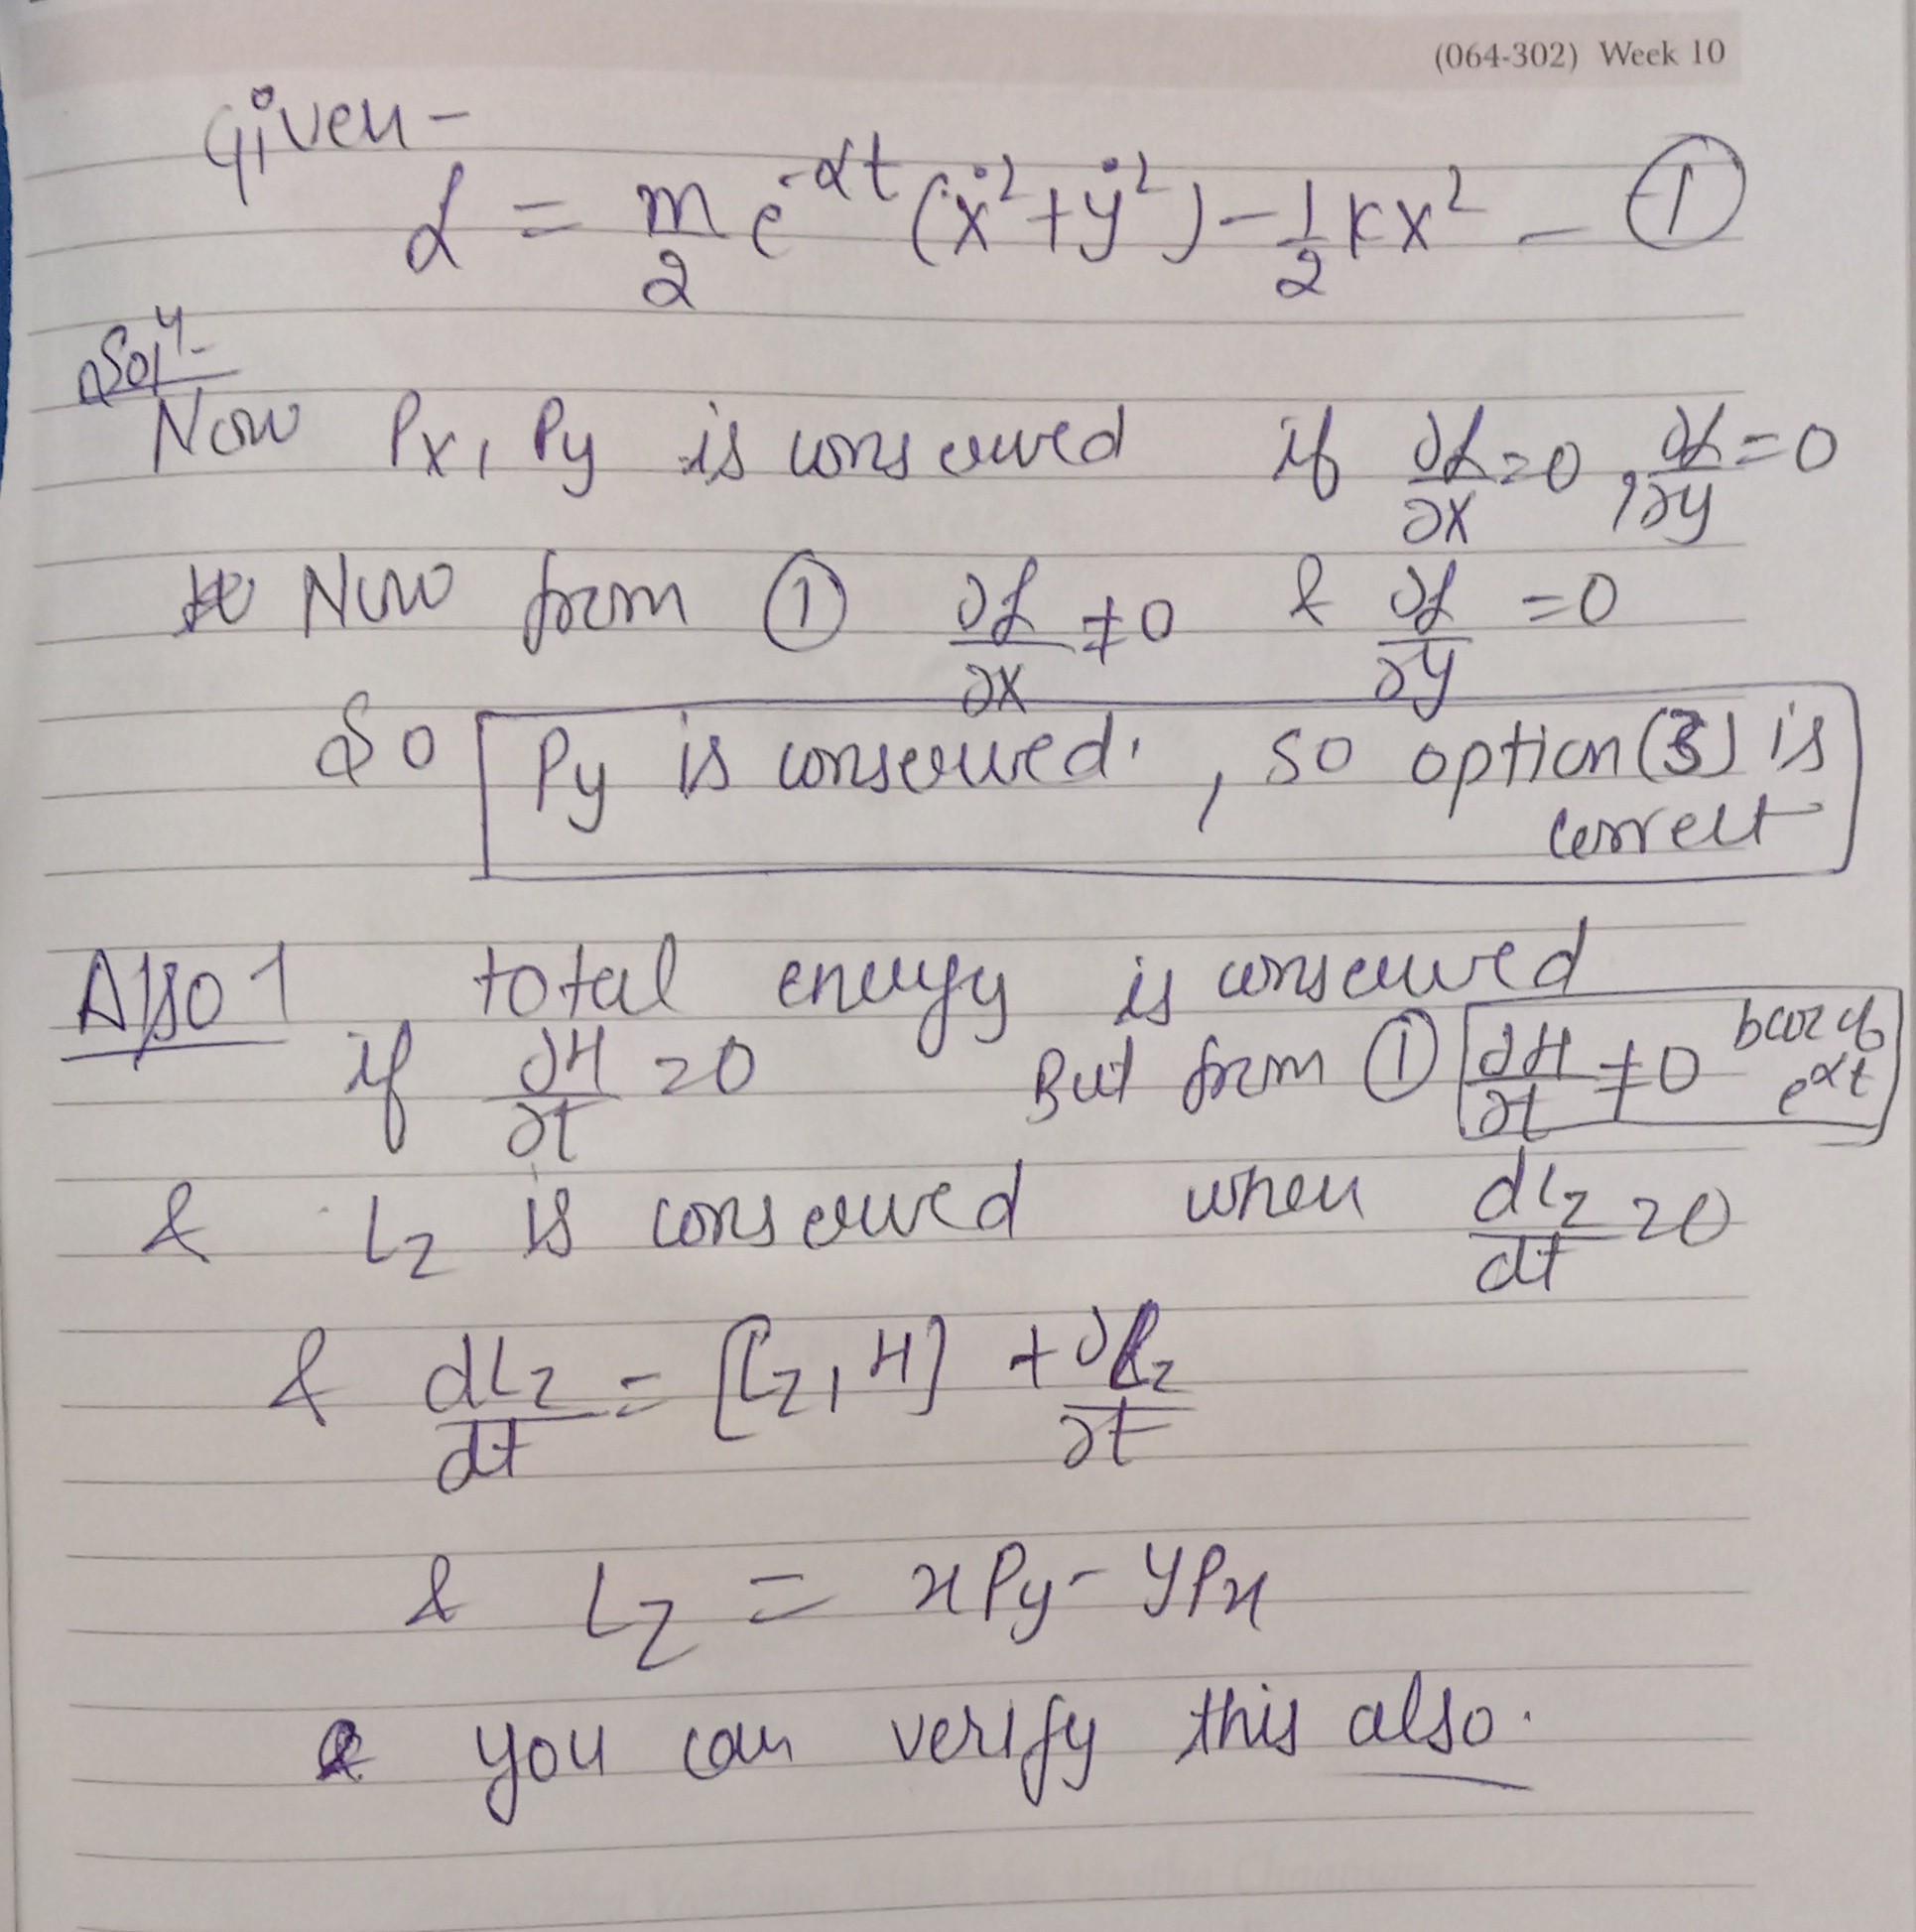 (064-302) Week 10
Given -
L = m/2 e^-αt (ẋ² + ẏ²) - 1/2 kx² - ①
Solⁿ-
Now Px, Py is conserved if ∂L/∂x = 0, ∂L/∂y = 0
Now from ① ∂L/∂x ≠ 0 & ∂L/∂y = 0
So Py is conserved, so option (3) is
correct
Also 1 total energy is conserved
if ∂H/∂t = 0 But from ① ∂H/∂t ≠ 0 bcoz of e^αt
& Lz is conserved when dLz/dt = 0
& dLz/dt = [Lz, H] + ∂Lz/∂t
& Lz = xPy - yPx
& you can verify this also.